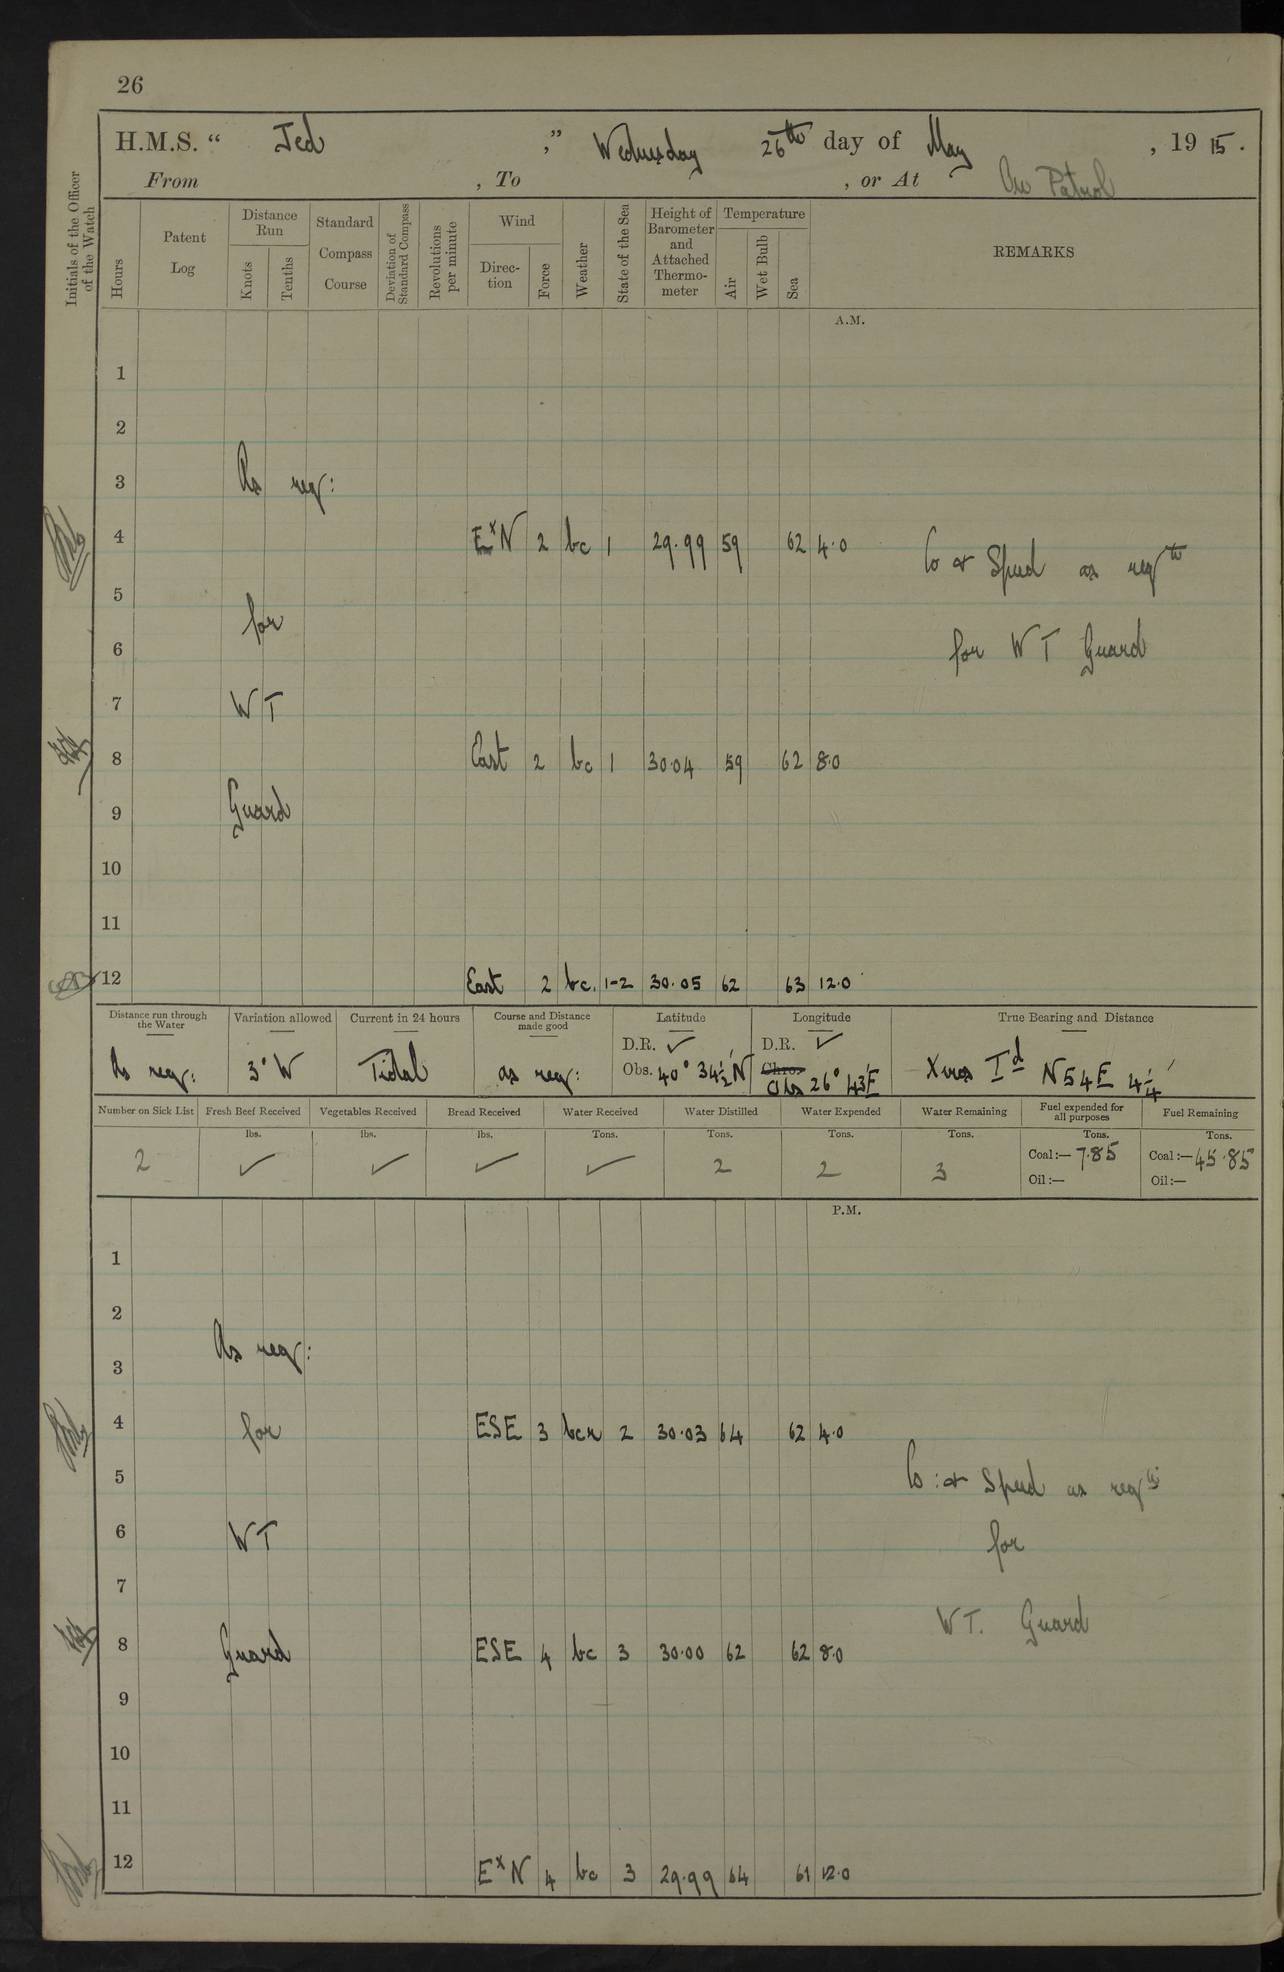 26
H.M.S. “ Jed ,” Wednesday 26th day of May , 19 15.
From , To , or At On Patrol
Initials of the Officer of the Watch
Hours Patent Log Distance Run Knots Tenths Standard Compass Course Deviation of Standard Compass Revolutions per minute Wind Direc-tion Force Weather State of the Sea Height of Barometer and Attached Thermo-meter Temperature Air Wet Bulb Sea REMARKS
A.M.
1
2
3 As req:
4 ExN 2 bc 1 29.99 59 62 4.0
Co & Speed as reqte
5
for
6 for WT Guard
7 WT
8 East 2 bc 1 30.04 59 62 8.0
9 Guard
10
11
12 East 2 bc. 1-2 30.05 62 63 12.0
Distance run through the Water Variation allowed Current in 24 hours Course and Distance made good Latitude Longitude True Bearing and Distance
D.R. ✓ D.R. ✓
As req: 3° W Tidal as req: Obs. 40° 34½' N Chro. Obs 26° 43'E Xeros Id N54E 4¼'
Number on Sick List Fresh Beef Received Vegetables Received Bread Received Water Received Water Distilled Water Expended Water Remaining Fuel expended for all purposes Fuel Remaining
lbs. lbs. lbs. Tons. Tons. Tons. Tons. Tons. Tons.
2 ✓ ✓ ✓ ✓ 2 2 3 Coal:— 7.85 Coal:— 45.85
Oil:— Oil:—
P.M.
1
2
As req:
3
4 for ESE 3 bcr 2 30.03 64 62 4.0
5 Co: & Speed as reqte
6 WT for
7
WT. Guard
8 Guard ESE 4 bc 3 30.00 62 62 8.0
9
10
11
12 ExN 4 bc 3 29.99 64 61 12.0